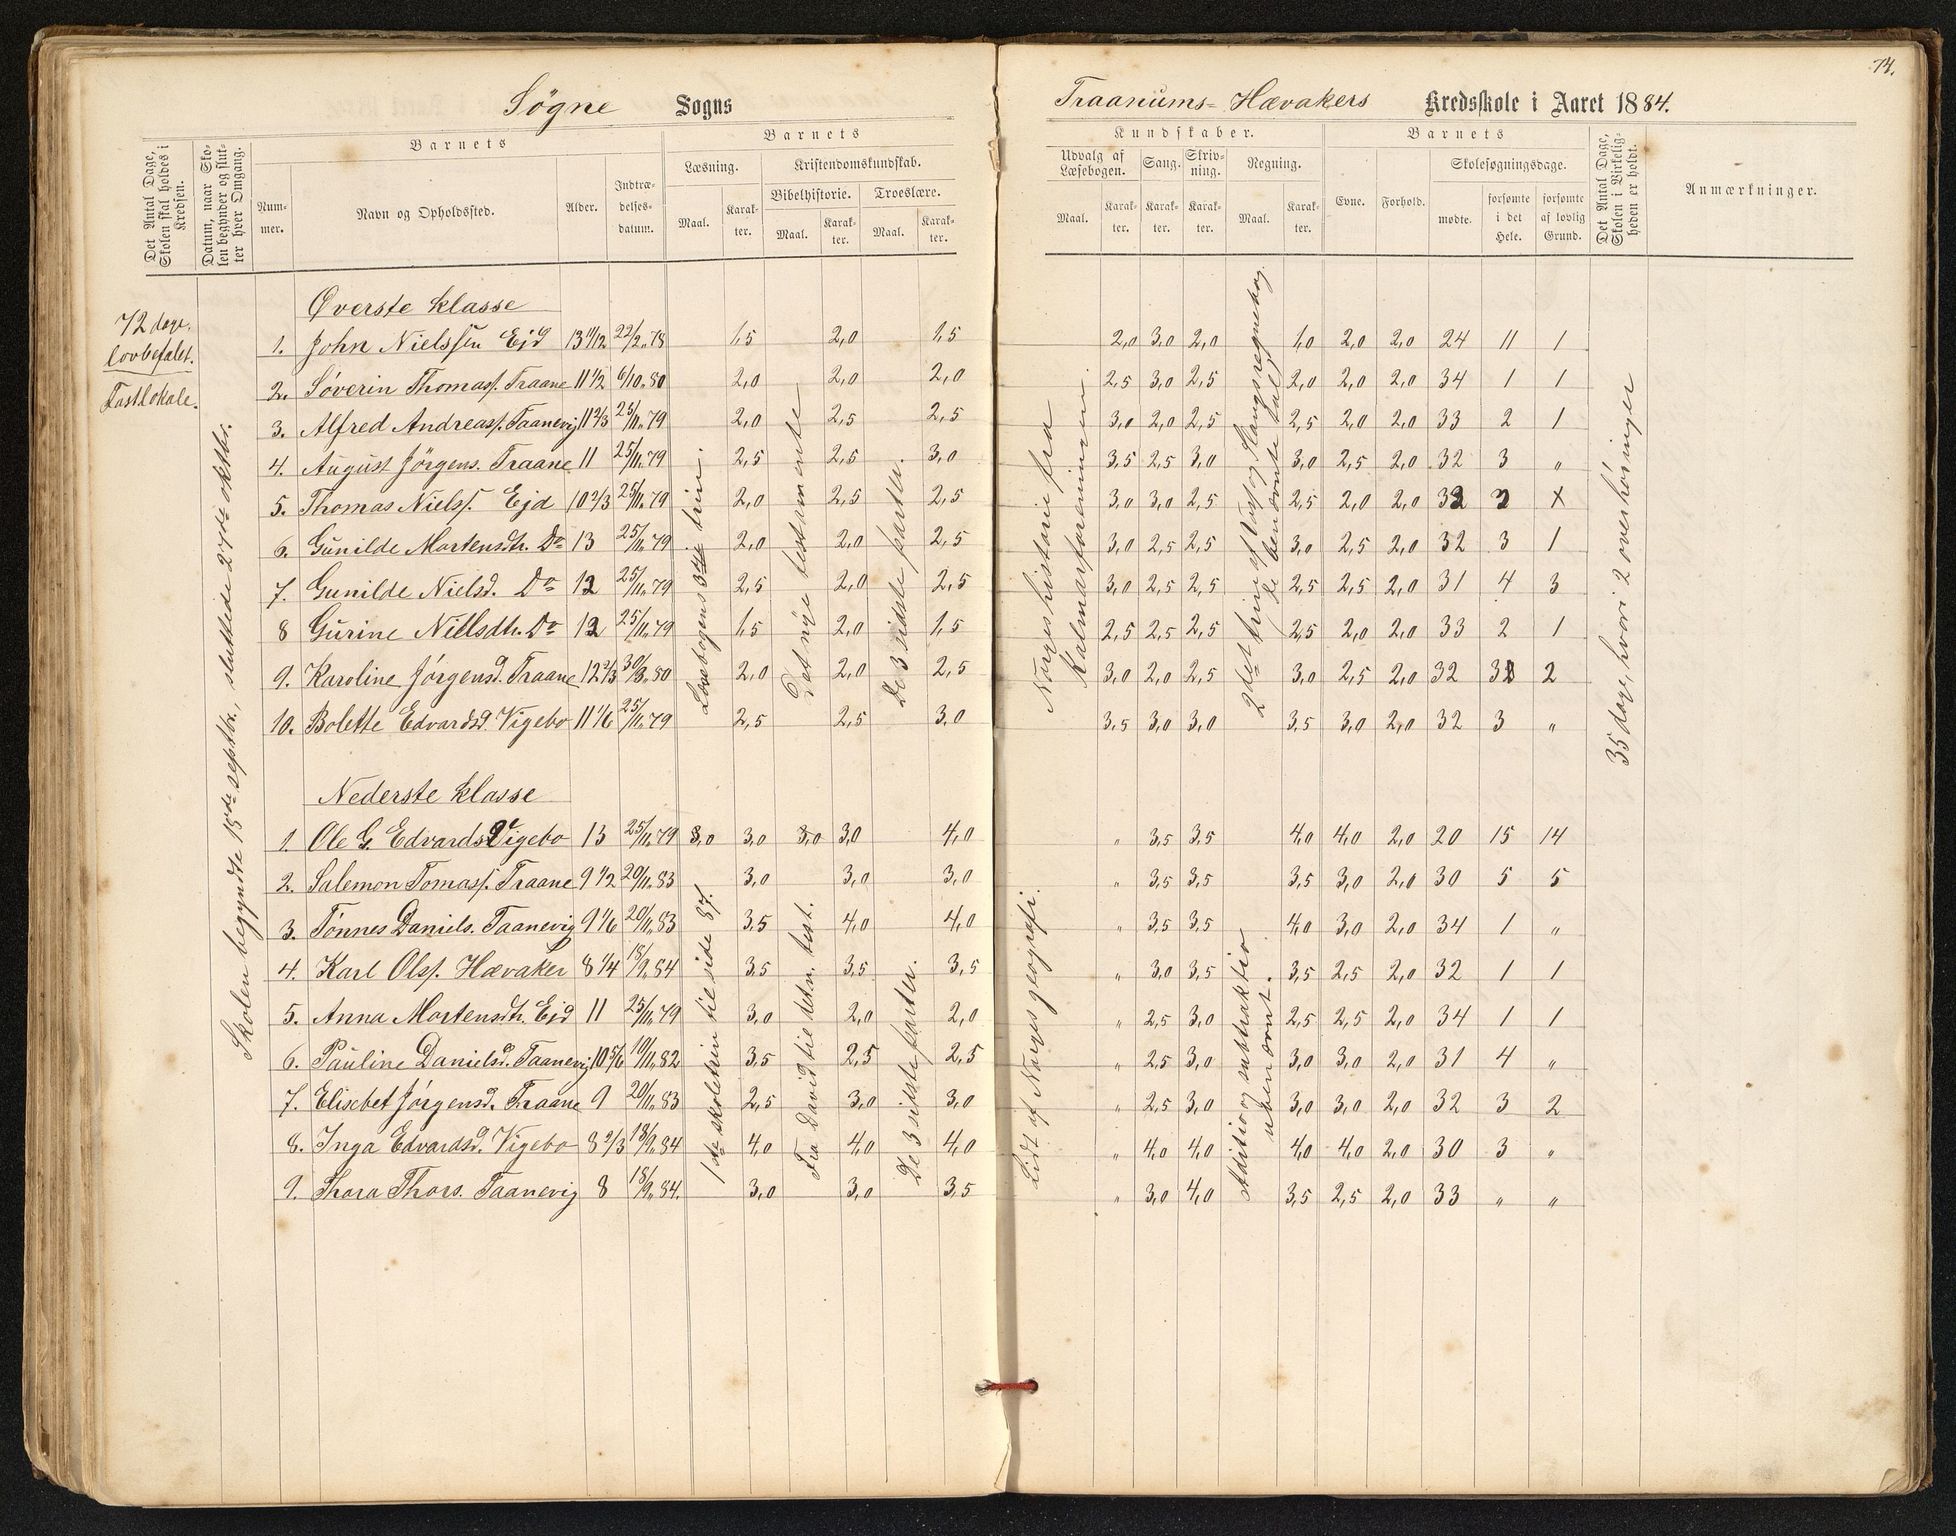 74.
Søgne Sogns
Traanums- Hævakers Kredsskole i Aaret 1884.
Det Antal Dage, Skolen skal holdes i Kredsen.
Datum, naar Skolen begynder og slutter hver Omgang.
Barnets
Nummer.
Navn og Opholdssted.
Alder.
Indtrædelsesdatum.
Barnets
Læsning.
Maal.
Karakter.
Kristendomskundskab.
Bibelhistorie.
Maal.
Karakter.
Troeslære.
Maal.
Karakter.
Kundskaber.
Udvalg af Læsebogen.
Maal.
Karakter.
Sang.
Karakter.
Skrivning.
Karakter.
Regning.
Maal.
Karakter.
Barnets
Evne.
Forhold.
Skolesøgningsdage.
mødte.
forsømte i det Hele.
forsømte af lovlig Grund.
Det Antal Dage, Skolen i Virkeligheden er holdt.
Anmærkninger.
72 dage.
lovbefalet.
Fastlokale.
Skolen begyndte 15de septbr., sluttede 27de oktbr.
Øverste klasse
1. John Nielssen Ejd 13 11/12 22/2.78 1,5 2,0 1,5 2,0 3,0 2,0 1,0 2,0 2,0 24 11 1
2. Søverin Thomass. Traane 11 1/2 6/10.80 2,0 2,0 2,0 2,5 3,0 2,5 2,0 2,0 2,0 34 1 1
3. Alfred Andreass. Taanevig 11 2/3 25/11.79 2,0 2,5 2,5 3,0 2,0 2,5 2,5 2,0 2,0 33 2 1
4. August Jørgens. Traane 11 25/11.79 2,5 2,5 3,0 3,5 2,5 3,0 3,0 2,5 2,0 32 3 "
5. Thomas Niels. Ejd 10 2/3 25/11.79 2,0 2,5 2,5 3,0 3,0 2,5 2,5 2,0 2,0
6. Gunilde Mortensdtr. Do 13 25/11.79 2,0 2,0 2,5 3,0 2,5 2,5 3,0 2,5 2,0 32 3 1
7. Gunilde Nielsd. Do 12 25/11.79 2,5 2,0 2,5 3,0 2,5 2,5 2,5 2,5 2,0 31 4 3
8 Gurine Nielsdtr. Do 12 25/11.79 1,5 2,0 1,5 2,5 2,5 2,5 2,5 2,0 2,0 33 2 1
9. Karoline Jørgensd. Traane 12 2/3 2,0 2,0 2,5 3,0 2,0 2,5 3,0 2,5 2,0 32 3 2
10. Bolette Edvardsd. Vigebo 11 1/6 25/11.79 2,5 2,5 3,0 3,5 3,0 3,0 3,5 3,0 2,0 32 3 "
Læsebogens 3die trin.
Det nye testamente
De 3 sidste parter.
Norges historie fra Kalmarforeningen.
35 dage, hvori 2 overhøringer
Nederste klasse
1. Ole G. Edvards. Vigebo 13 25/11.79 3,0 3,0 3,0 3,0 4,0 " 3,5 3,5 4,0 4,0 2,0 20 15 14
2. Salemon Tomass. Traane 9 1/2 20/11.83 3,0 3,0 3,0 " 3,5 3,5 3,5 3,0 2,0 30 5 5
3. Tønnes Daniels. Taanevig 9 1/6 20/11.83 3,5 4,0 4,0 " 3,5 3,5 4,0 3,0 2,0 34 1 "
4. Karl Ols. Hævaker 8 1/4 18/9.84 3,5 3,5 3,5 " 3,0 3,5 3,5 2,5 2,0 32 1 1
5. Anna Mortensdtr. Ejd 11 25/11.79 3,0 2,0 2,0 " 2,5 3,0 2,5 2,5 2,0 34 1 1
6. Pauline Danielsd. Taanevig 10 5/6 10/11.82 3,5 2,5 2,5 " 2,5 3,0 3,0 3,0 2,0 31 4 "
7. Elisebet Jørgensd. Traane 9 20/11.83 2,5 3,0 3,0 " 2,5 3,0 3,0 3,0 2,0 32 3 2
8. Inga Edvardsd. Vigebo 8 2/3 18/9.84 4,0 4,0 4,0 " 4,0 4,0 4,0 4,0 2,0 30 3 "
9. Thora Thors. Taanevig 8 18/9.84. 3,0 3,0 3,5 " 3,0 4,0 3,5 2,5 2,0 33 " "
1ste skoletrin til side 87.
Fra David til det n. test.
De 3 sidste parter.
Lidt af Norges geografi.
Aditio og subtraktio ubenævnt.